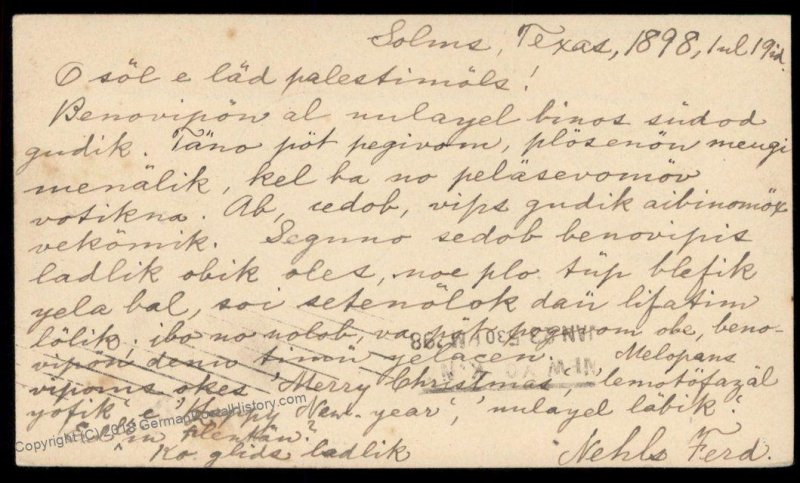 Solms, Texas, 1898, 1ul 19id.
O söl e läd palestimöls!
Benovipön al nulayel binos südod
gudik. Täno pöt pegivom, plösenön mengi
menälik, kel ba no peläsevomöv
votikna. Ab, sedob, vips gudik aibinomöx
vekömik. Seguno sedob benovipis
ladlik obik oles, noe plo tüp blefik
yela bal, soi setenölok daü lifatim
lölik, ibo no nolob, va pöt pegivom obe, beno-
vipön denu timü yelacen. Melopans
vipoms okes 'Merry Christmas', 'lemotöfazäl
yofik' e 'Happy New-year', 'nulayel läbik'.
Ko glids ladlik
Nehls Ferd.
JAN 23 5 30 PM 98
NEW YO
Copyright (C) 2018 GermanPostalHistory.com